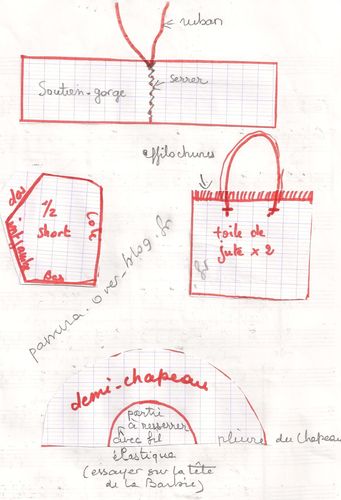 ruban
Soutien-gorge
serrer
effilochures
dos
1/2
short
coté
entrejambe
Bas
toile de
jute x 2
passura.over_blog.fr
.fr
demi-chapeau
partie
à resserrer
avec fil
élastique
(essayer sur la tête
de la Barbie)
pliure du chapeau